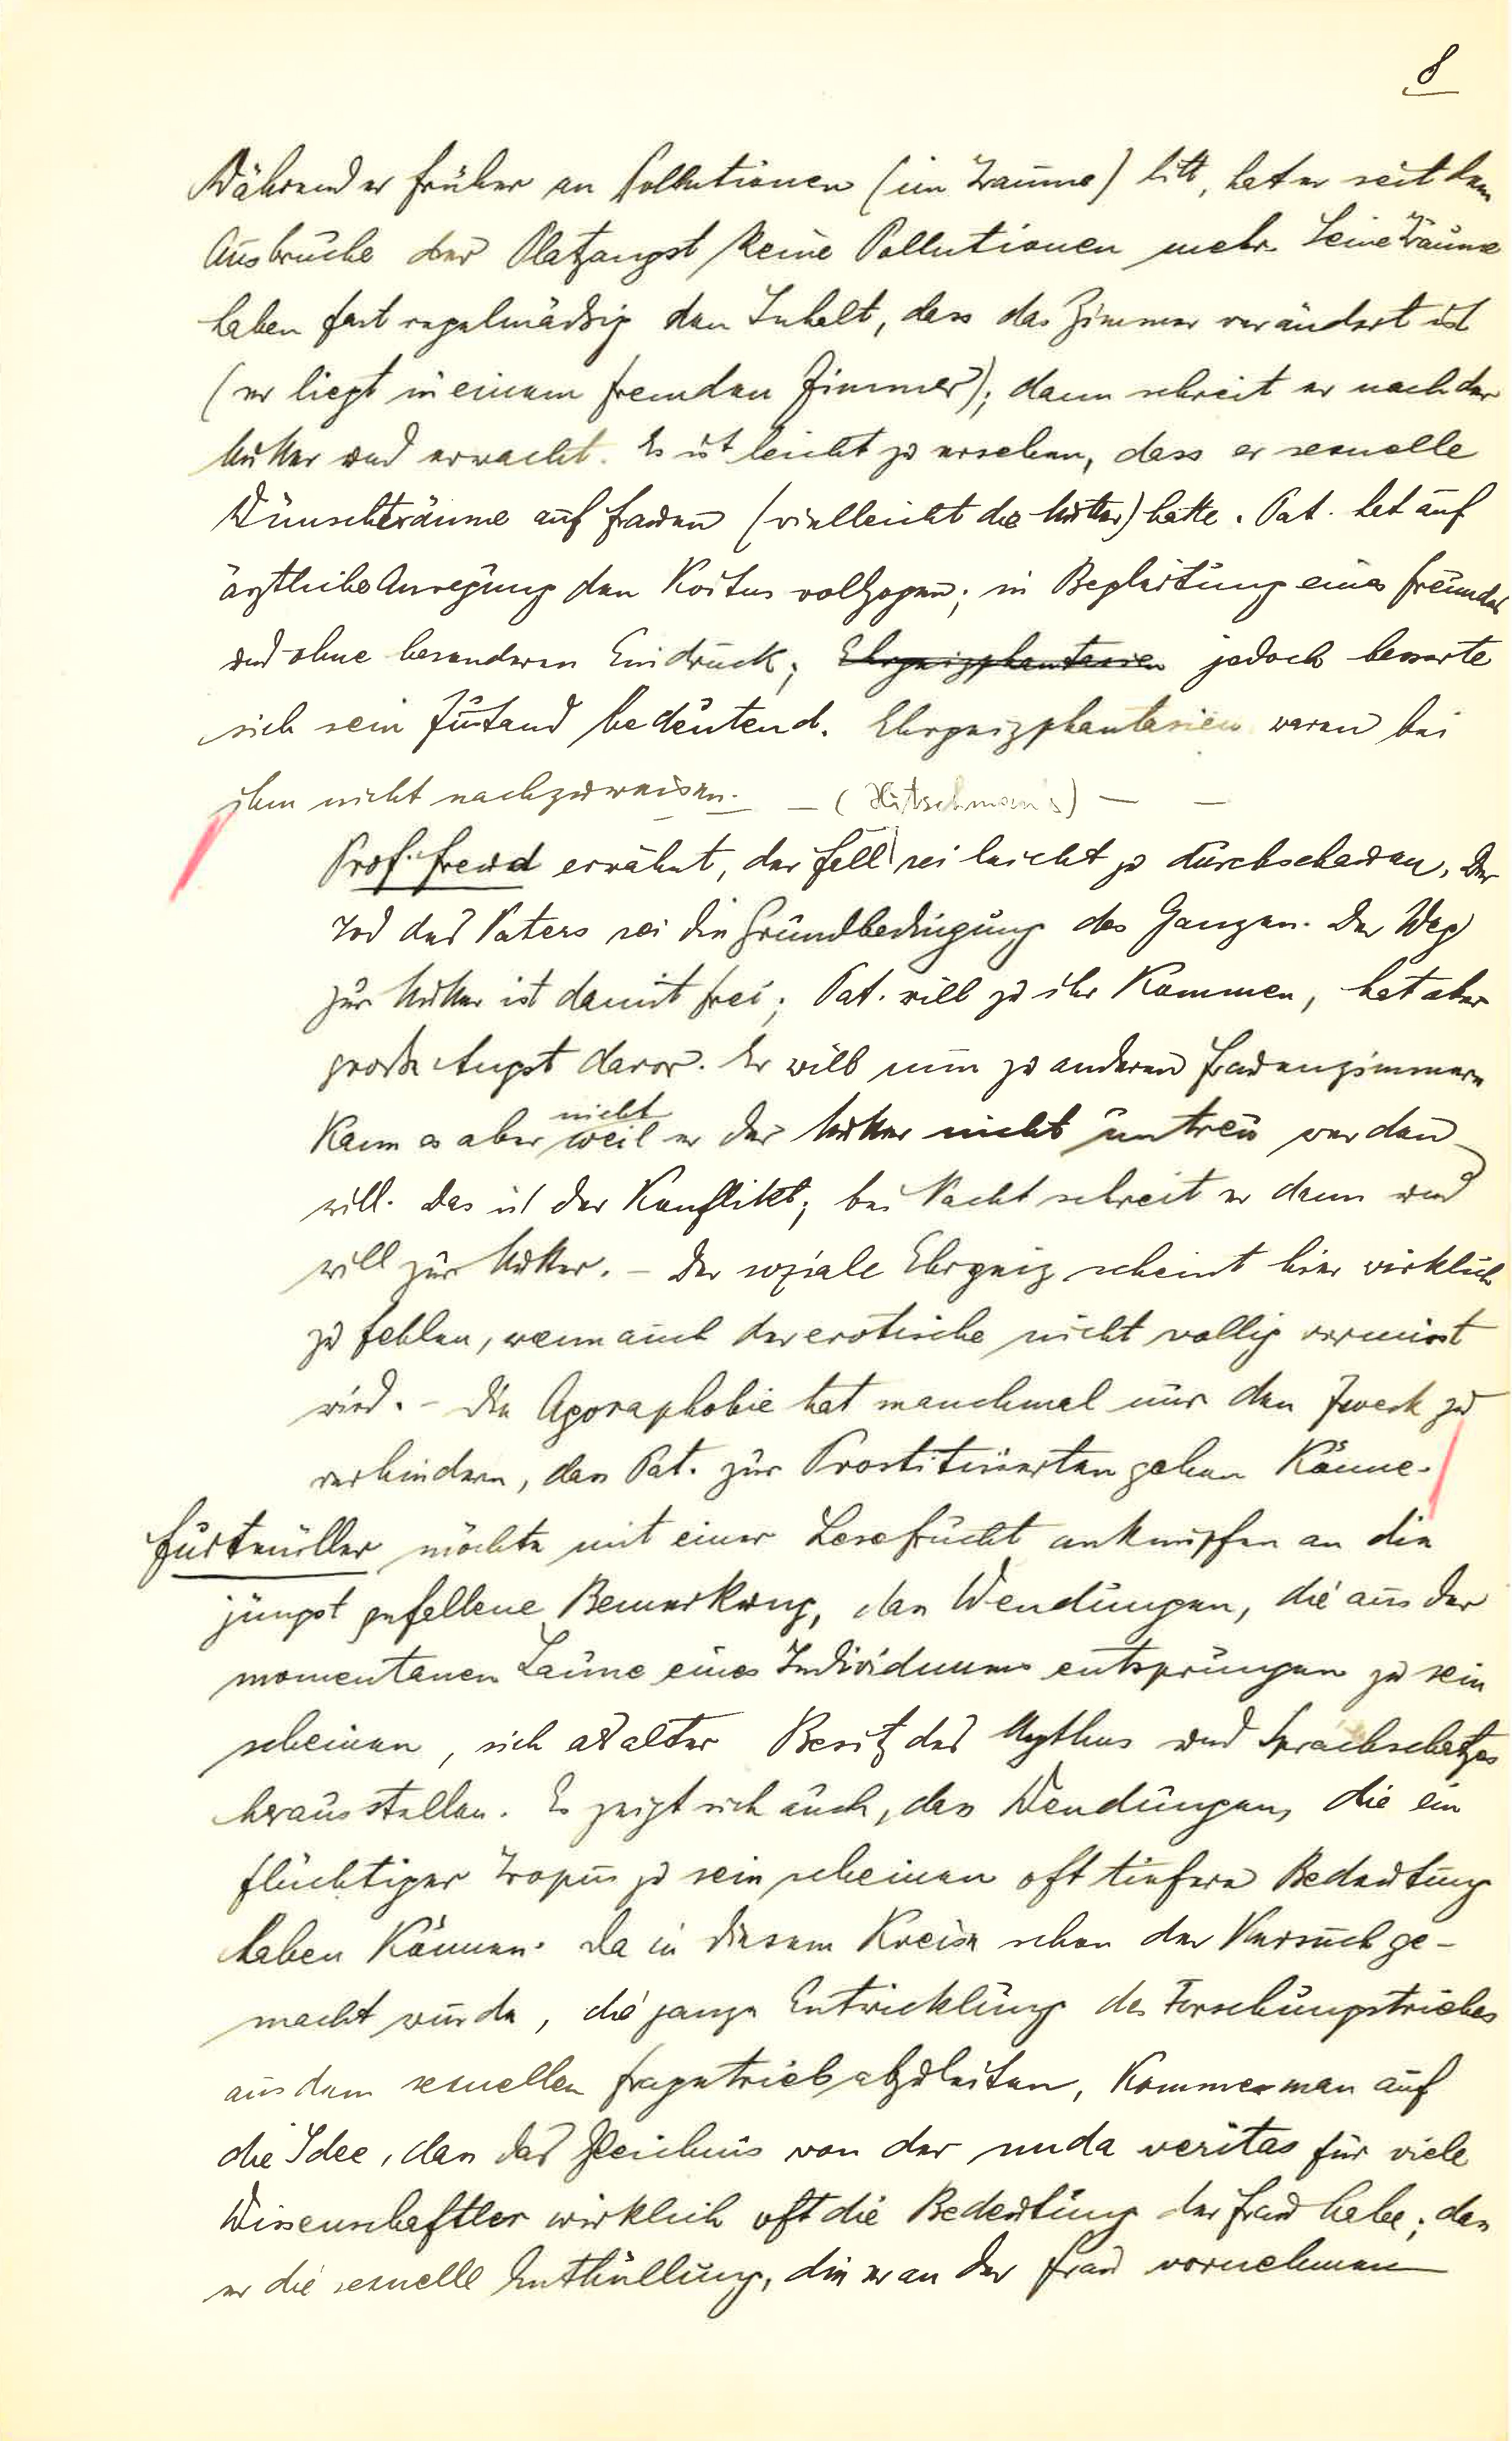 8
Während er früher an Pollutionen (im Traume) litt, hat er seit dem
Ausbruche der Platzangst keine Pollutionen mehr. Seine Träume
haben fast regelmäßig den Inhalt, dass das Zimmer verändert ist
(er liegt in einem fremden Zimmer); dann schreit er nach der
Mutter und erwacht. Es ist leicht zu ersehen, dass er sexuelle
Wunschträume auf Frauen (vielleicht die Mutter) hatte. Pat. hat auf
ärztliche Anregung den Koitus vollzogen; in Begleitung eines Freundes
und ohne besonderen Eindruck; Ehrgeizphantasien jedoch besserte
sich sein Zustand bedeutend. Ehrgeizphantasien waren bei
ihm nicht nachzuweisen. — (Hitschmann's) — —
Prof. Freud erwähnt, der Fall sei leicht zu durchschauen. Der
Tod des Vaters sei die Grundbedingung des Ganzen. Der Weg
zur Mutter ist damit frei; Pat. will zu ihr kommen, hat aber
große Angst davor. Er will nun zu anderen Frauenzimmern
kann es aber nicht weil er der Mutter nicht untreu werden
will. Das ist der Konflikt; bei Nacht schreit er dann und
will zur Mutter. – Der soziale Ehrgeiz scheint hier wirklich
zu fehlen, wenn auch der erotische nicht vollig vermisst
wird. – Die Agoraphobie hat manchmal nur den Zweck zu
verhindern, dass Pat. zur Prostituierten gehen könne.
Furtmüller möchte mit einer Lesefrucht anknüpfen an die
jüngst gefallene Bemerkung, dass Wendungen, die aus der
momentanen Laune eines Individuums entsprungen zu sein
scheinen, sich als alter Besitz des Mythus und Sprachschatzes
herausstellen. Es zeigt sich auch, dass Wendungen, die ein
flüchtiger Tropus zu sein scheinen oft tiefere Bedeutung
haben können. Da in diesem Kreise schon der Versuch ge-
macht wurde, die ganze Entwicklung des Forschungstriebes
aus dem sexuellen Fragetrieb abzuleiten, komme man auf
die Idee, dass das Gleichnis von der nuda veritas für viele
Wissenschaftler wirklich oft die Bedeutung der Frau habe; dass
er die sexuelle Enthüllung, die er an der Frau vornehmen